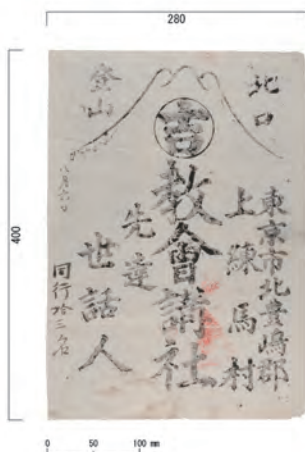 280
400
北口
東京市北豊嶋郡
上練馬村
吉
教會講社
先達
世話人
登山
八月六日
同行拾三名
0 50 100 mm